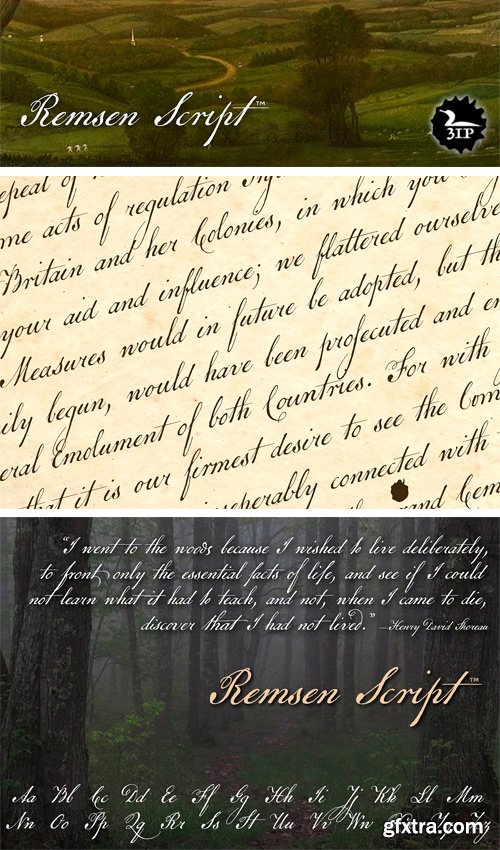 Remsen Script™
3IP
epeal of
me acts of regulation
Britain and her Colonies, in which you
your aid and influence; we flattered ourselve
Measures would in future be adopted, but th
ily begun, would have been proſecuted and en
eral Emolument of both Countries. For with
that it is our firmest desire to see the Com
inseperably connected with
and
“I went to the woods because I wished to live deliberately,
to front only the essential facts of life, and see if I could
not learn what it had to teach, and not, when I came to die,
discover that I had not lived.” —Henry David Thoreau
Remsen Script™
Aa Bb Cc Dd Ee Ff Gg Hh Ii Jj Kk Ll Mm
Nn Oo Pp Qq Rr Ss Tt Uu Vv Ww Xx Yy Zz
gfxtra.com